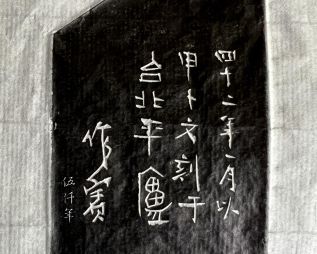 四十二年一月以
甲卜文刻于
台北平廬
作賓
伍仟年